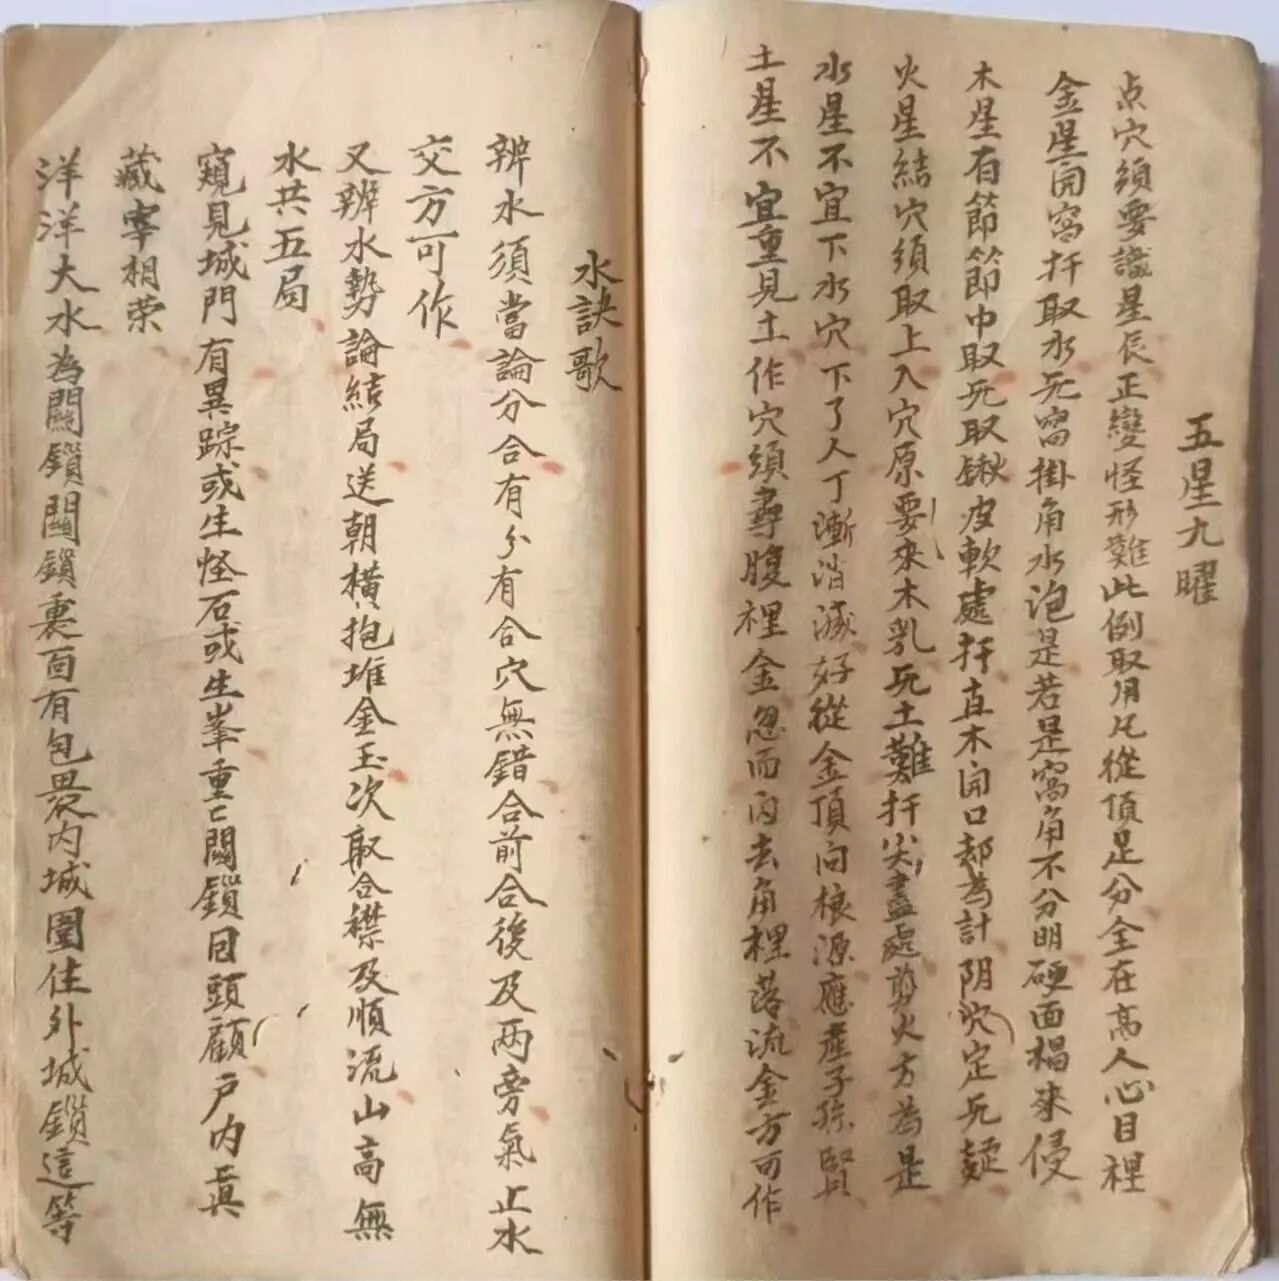 五星九曜
点穴須要識星辰正變怪形難此例取用凡從頂足分全在高人心目裡
金星開窩扦取水无窩掛角水泡是若是窩角不分明硬面榻來侵
木星有節節中取无取鍬皮軟處扦直木開口却為計阴穴定无疑
火星結穴須取上入穴原要來木乳无土難扦尖盡處剪火方為是
水星不宜下水穴下了人丁漸消滅好從金頂向根源應產子孫賢
土星不宜重見土作穴須尋腹裡金忽而内去角裡落流金方可作
水訣歌
辨水須當論分合有分有合穴無錯合前合後及两旁氣止水
交方可作
又辨水勢論結局送朝橫抱堆金玉次取合襟及順流山高無
水共五局
窺見城門有異踪或生怪石或生峯重〻關鎖回頭顧戶内真
藏宰相荣
洋洋大水為關鎖關鎖裏面有包畏内城圍住外城鎖這等